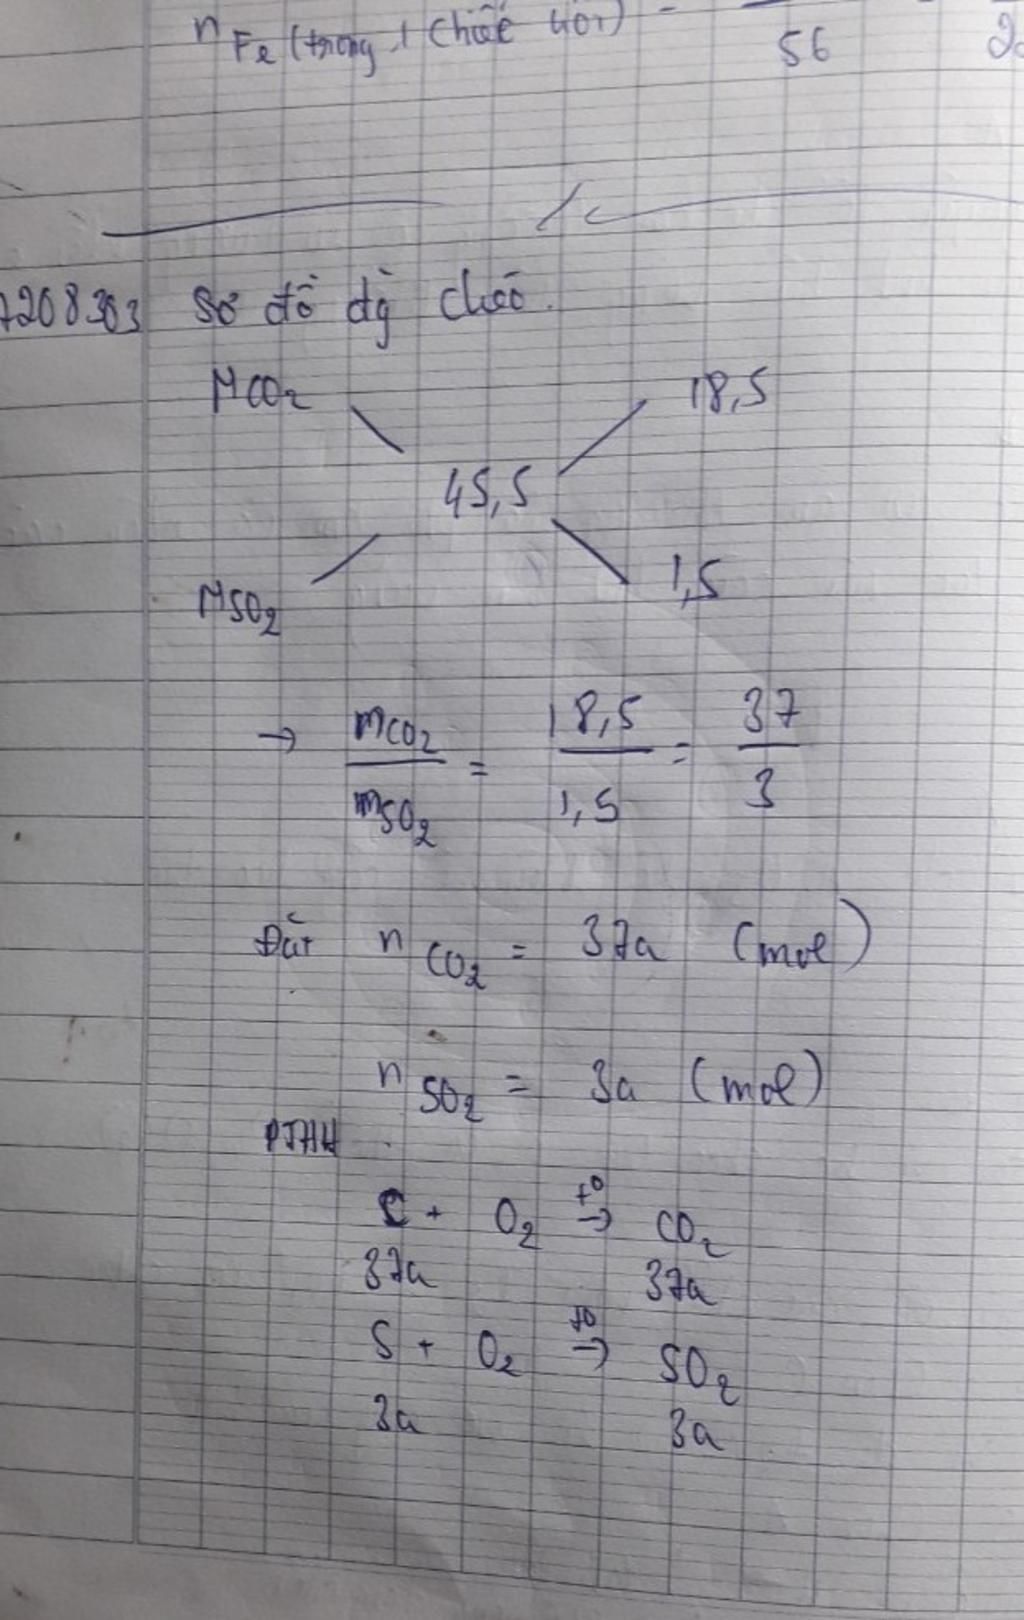 n Fe (trong 1 chiếc
56
7208303 Sơ đồ đg chéo.
MCO2 18,5
45,5
MSO2 1,5
→ mCO2 / mSO2 = 18,5 / 1,5 = 37 / 3
Đặt n CO2 = 37a (mol)
n SO2 = 3a (mol)
PTHH
C + O2 t0→ CO2
37a 37a
S + O2 t0→ SO2
3a 3a